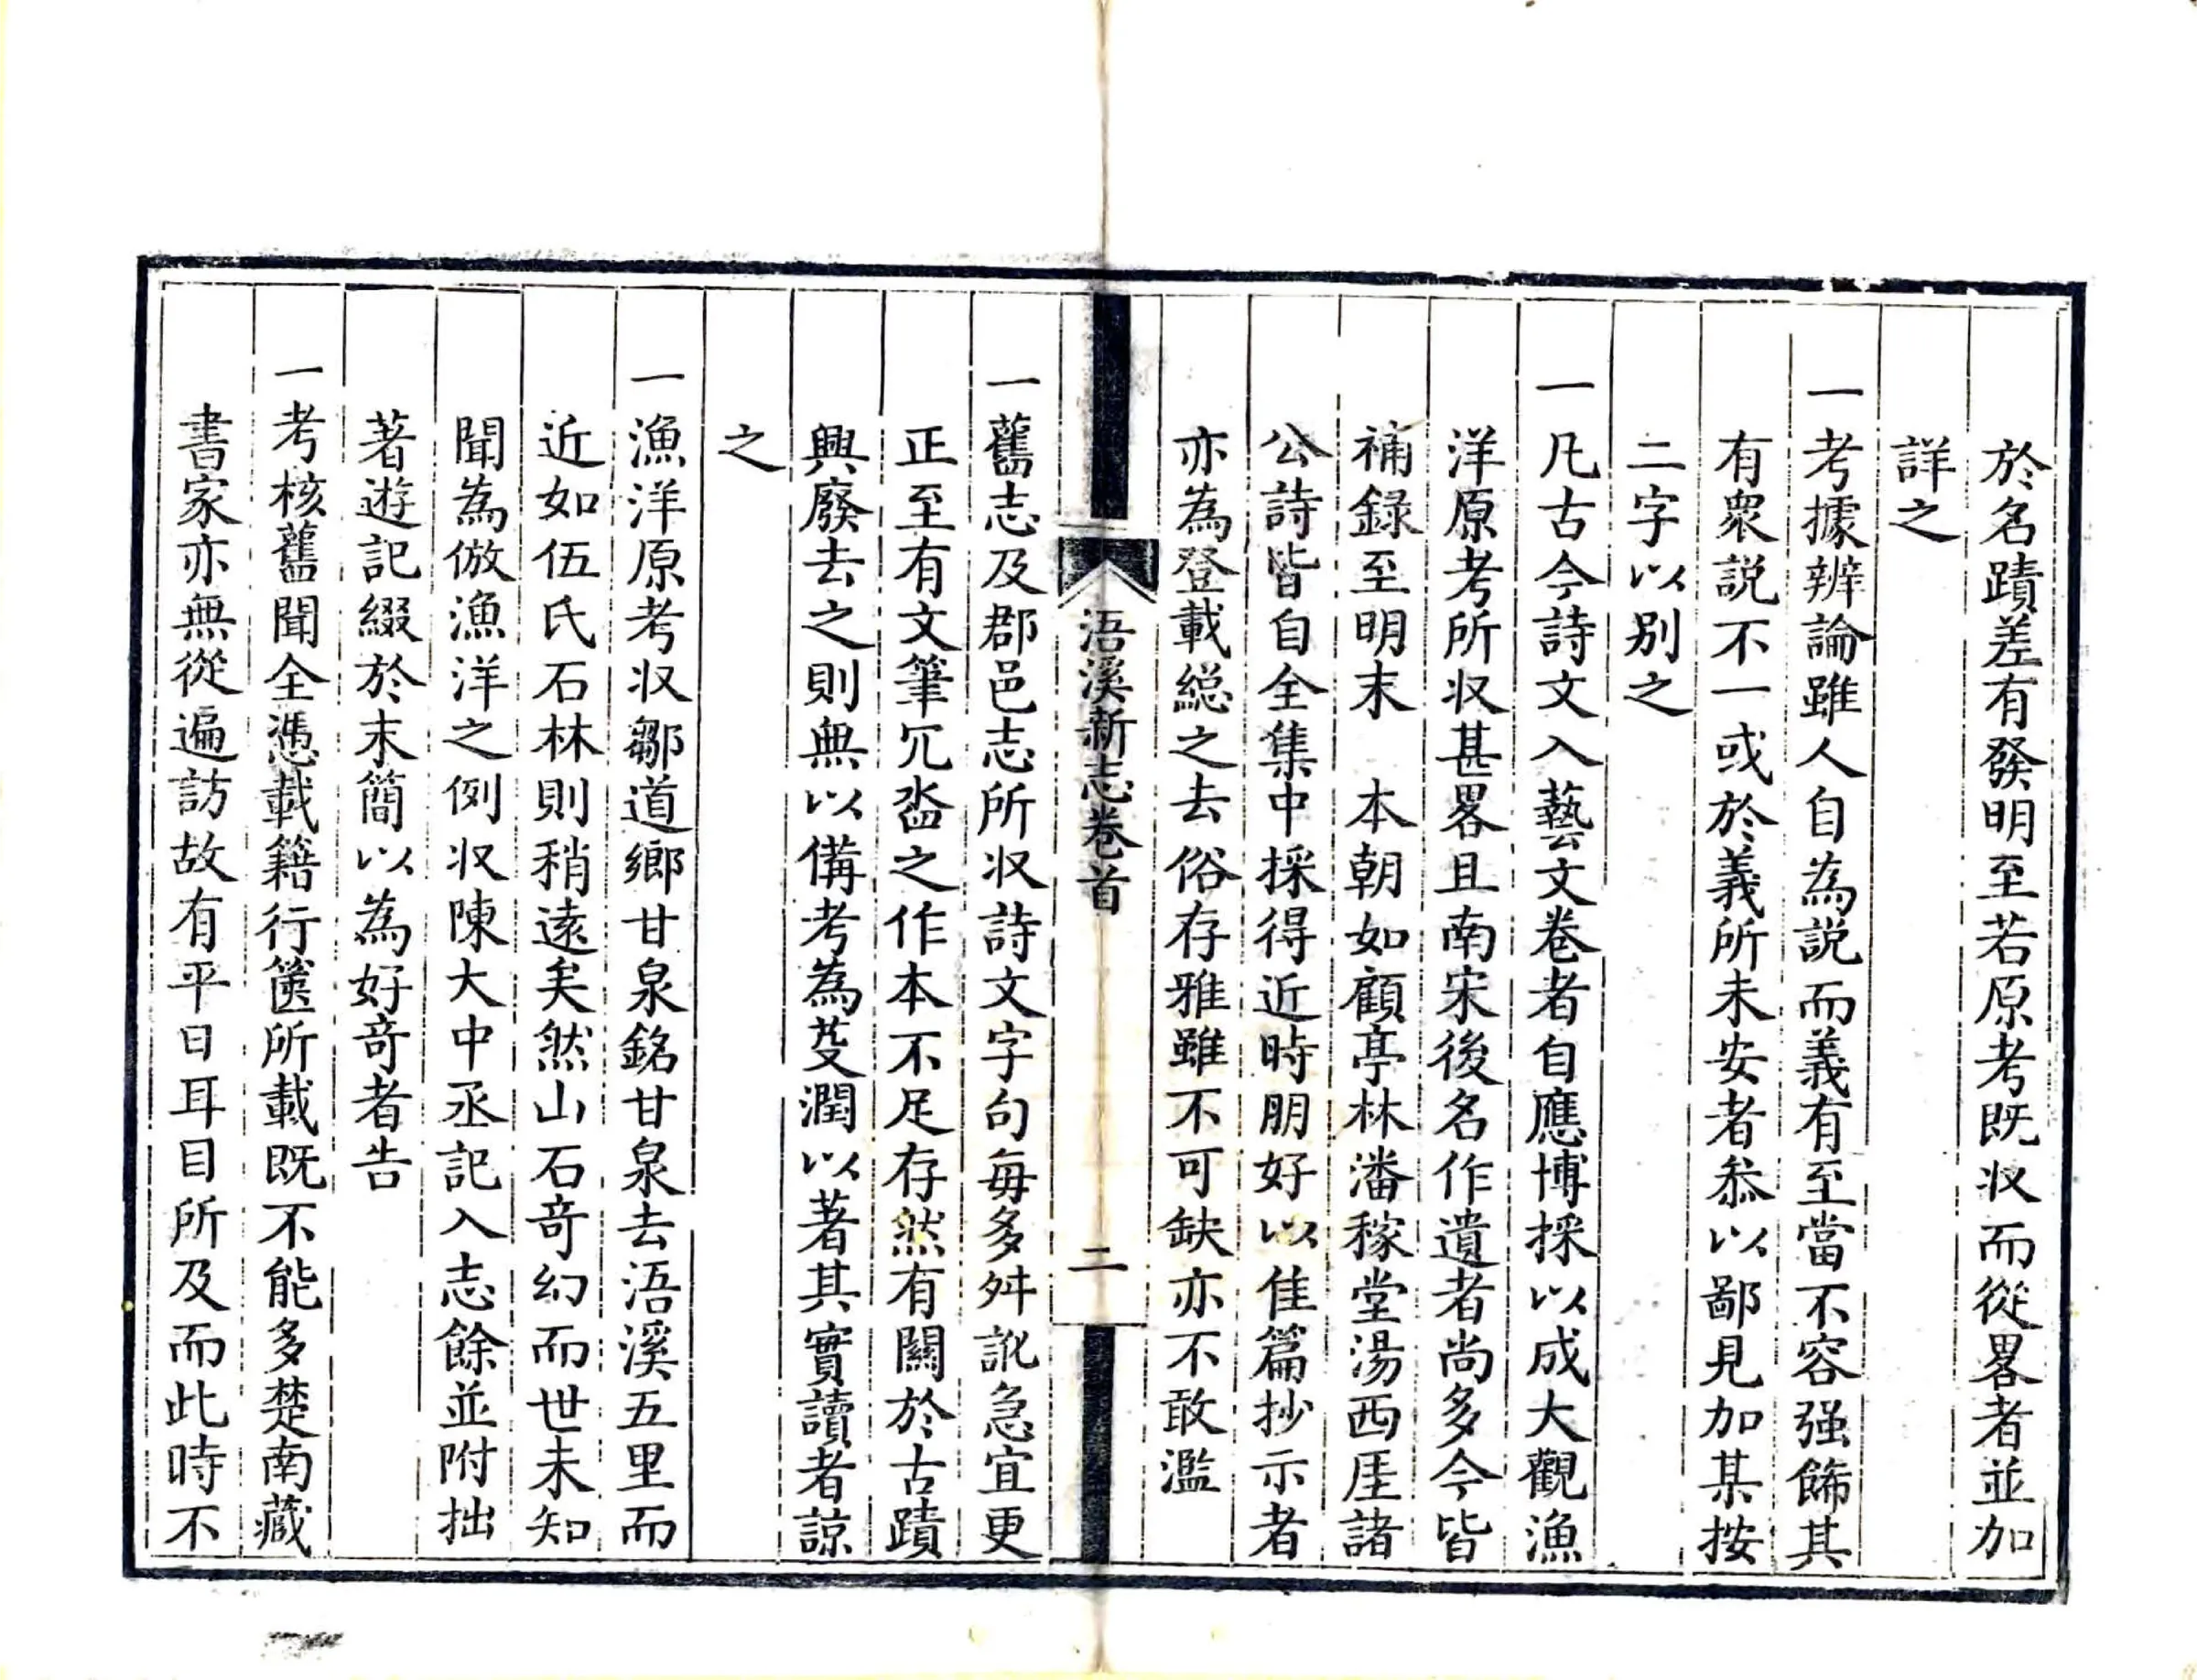 於名蹟差有發明至若原考既収而從畧者並加
詳之
一考據辨論雖人自為説而義有至當不容强飾其
有衆説不一或於義所未安者叅以鄙見加某按
二字以别之
一凡古今詩文入藝文卷者自應博採以成大觀漁
洋原考所収甚畧且南宋後名作遺者尚多今皆
補録至明末　本朝如顧亭林潘稼堂湯西厓諸
公詩皆自全集中採得近時朋好以佳篇抄示者
亦為登載緫之去俗存雅雖不可缺亦不敢濫
浯溪新志卷首
二
一舊志及郡邑志所収詩文字句每多舛訛急宜更
正至有文筆冗沓之作本不足存然有關於古蹟
興廢去之則無以備考為芟潤以著其實讀者諒
之
一漁洋原考収鄒道鄉甘泉銘甘泉去浯溪五里而
近如伍氏石林則稍逺矣然山石竒幻而世未知
聞為倣漁洋之例収陳大中丞記入志餘並附拙
著遊記綴於末簡以為好竒者告
一考核舊聞全憑載籍行篋所載既不能多楚南藏
書家亦無從遍訪故有平日耳目所及而此時不